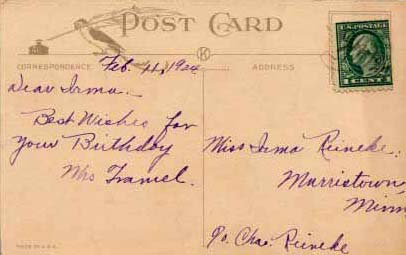 POST CARD
CORRESPONDENCE
ADDRESS
K
U.S. POSTAGE
1 CENT 1
Feb. 11, 1924
Dear Irma.
Best Wishes for
your Birthday
Mrs
Miss Irma Reineke.
Morristown
Minn
c/o. Chas. Reineke